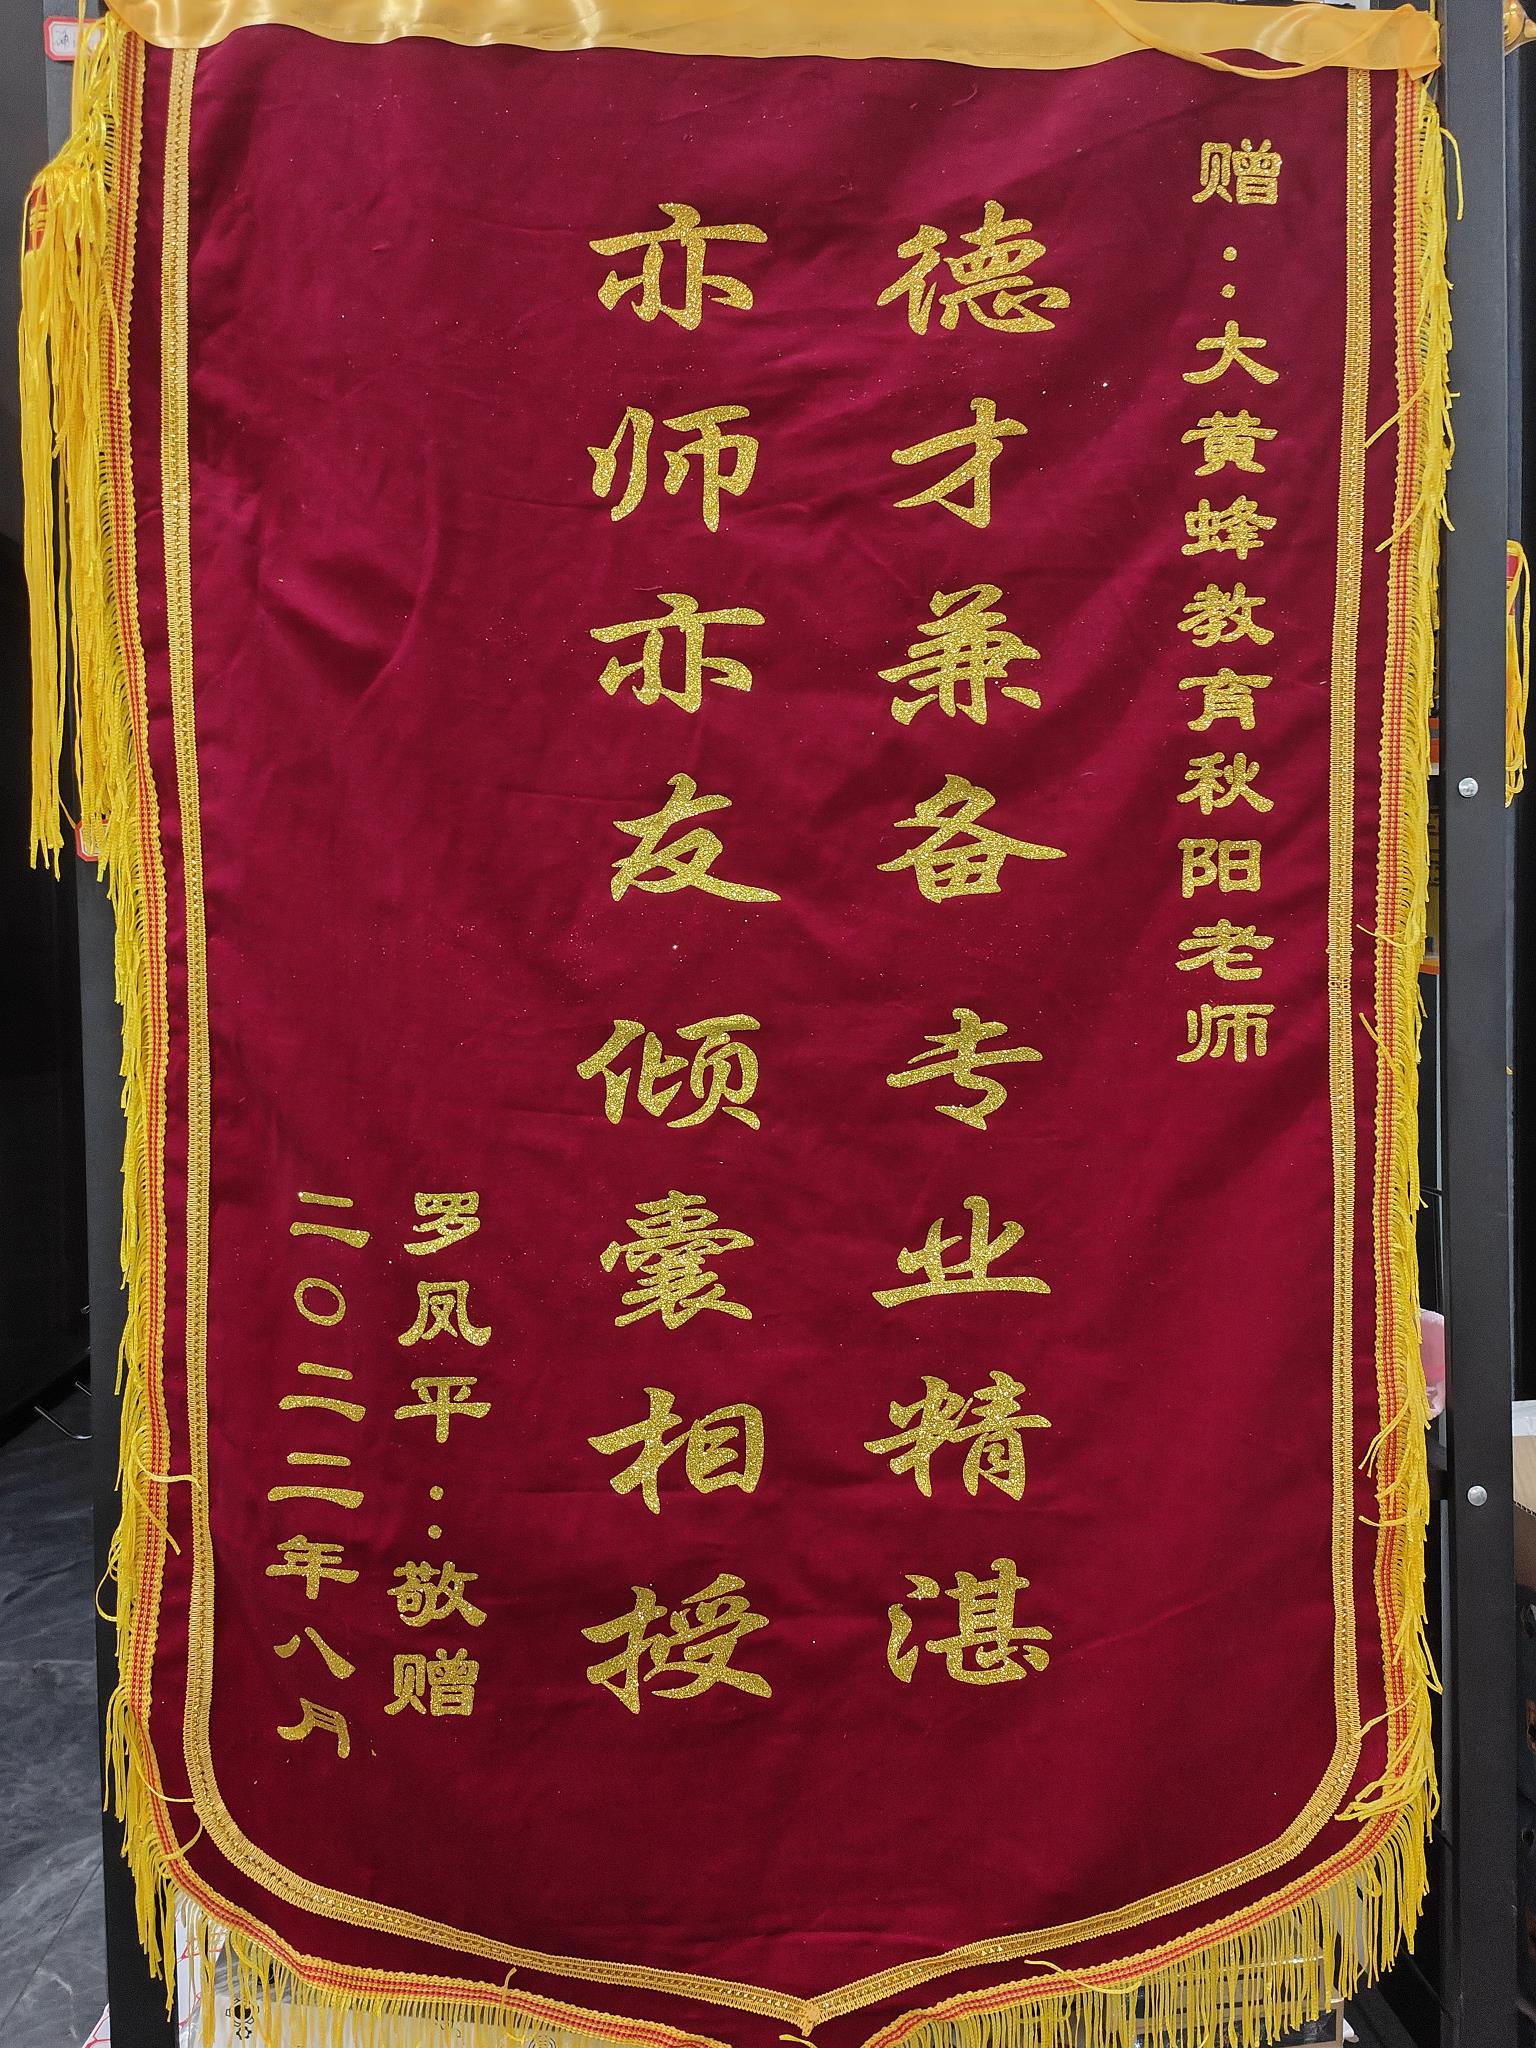 赠：大黄蜂教育秋阳老师
德才兼备专业精湛
亦师亦友倾囊相授
罗凤平：敬赠
二〇二二年八月